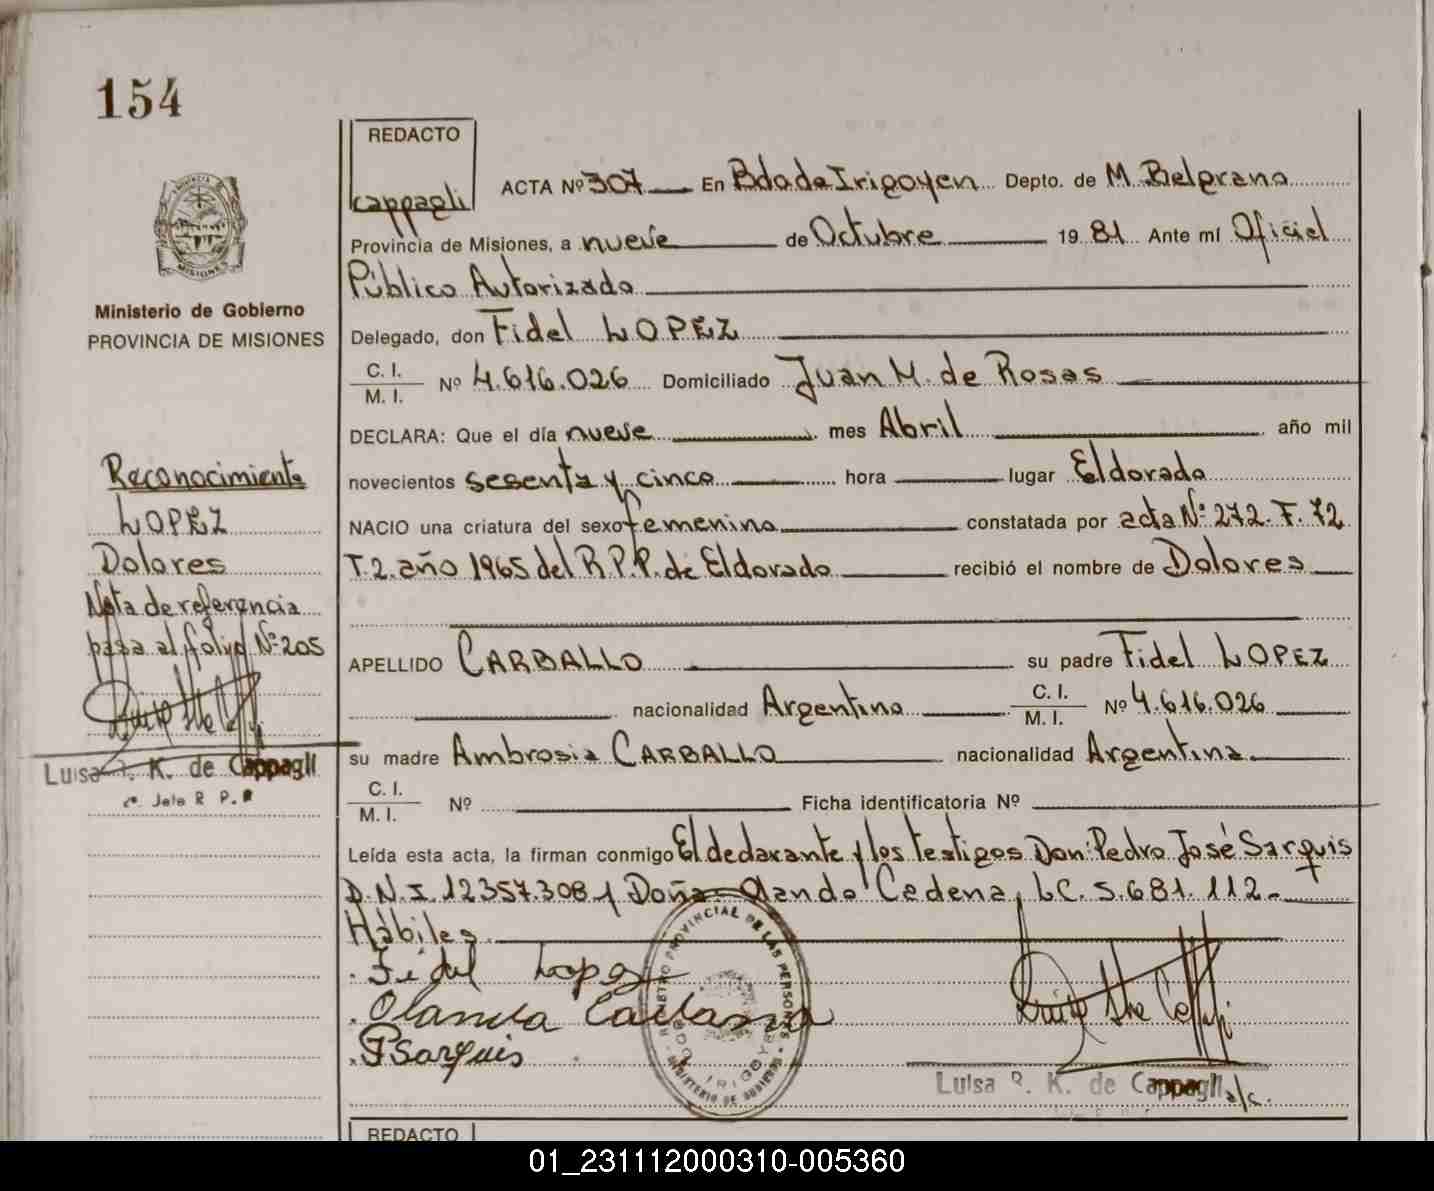 154
REDACTO
cappagli
ACTA Nº 307 En Bdo de Irigoyen Depto. de M. Belgrano
Provincia de Misiones, a nueve de Octubre 19 81 Ante mí Oficial
Público Autorizado
Delegado, don Fidel LOPEZ
C. I.
M. I.
Nº 4.616.026 Domiciliado Juan M. de Rosas
DECLARA: Que el día nueve mes Abril año mil
novecientos sesenta y cinco hora lugar Eldorado
NACIO una criatura del sexo femenino constatada por acta Nº 272. F. 72
T. 2. año 1965 del R.P.P. de Eldorado recibió el nombre de Dolores
APELLIDO CARBALLO su padre Fidel LOPEZ
nacionalidad Argentina C. I.
M. I.
Nº 4.616.026
su madre Ambrosia CARBALLO nacionalidad Argentina
C. I.
M. I.
Nº Ficha identificatoria Nº
Leída esta acta, la firman conmigo El declarante y los testigos Don: Pedro José Sarquis
D.N.I. 12357.308 y Doña Olanda Cedena, L.C. 5.681.112-
Hábiles.
Fidel Lopez
Olanda
PSarquis
REGISTRO PROVINCIAL DE LAS PERSONAS
BDO. IRIGOYEN
MINISTERIO DE GOBIERNO
Luisa R. K. de Cappagli
a/c.
REDACTO
MISIONES
Ministerio de Gobierno
PROVINCIA DE MISIONES
Reconocimiento
LOPEZ
Dolores
Nota de referencia
pasa al folio Nº 205
Luisa R. K. de Cappagli
Jefe R. P. P.
01_231112000310-005360